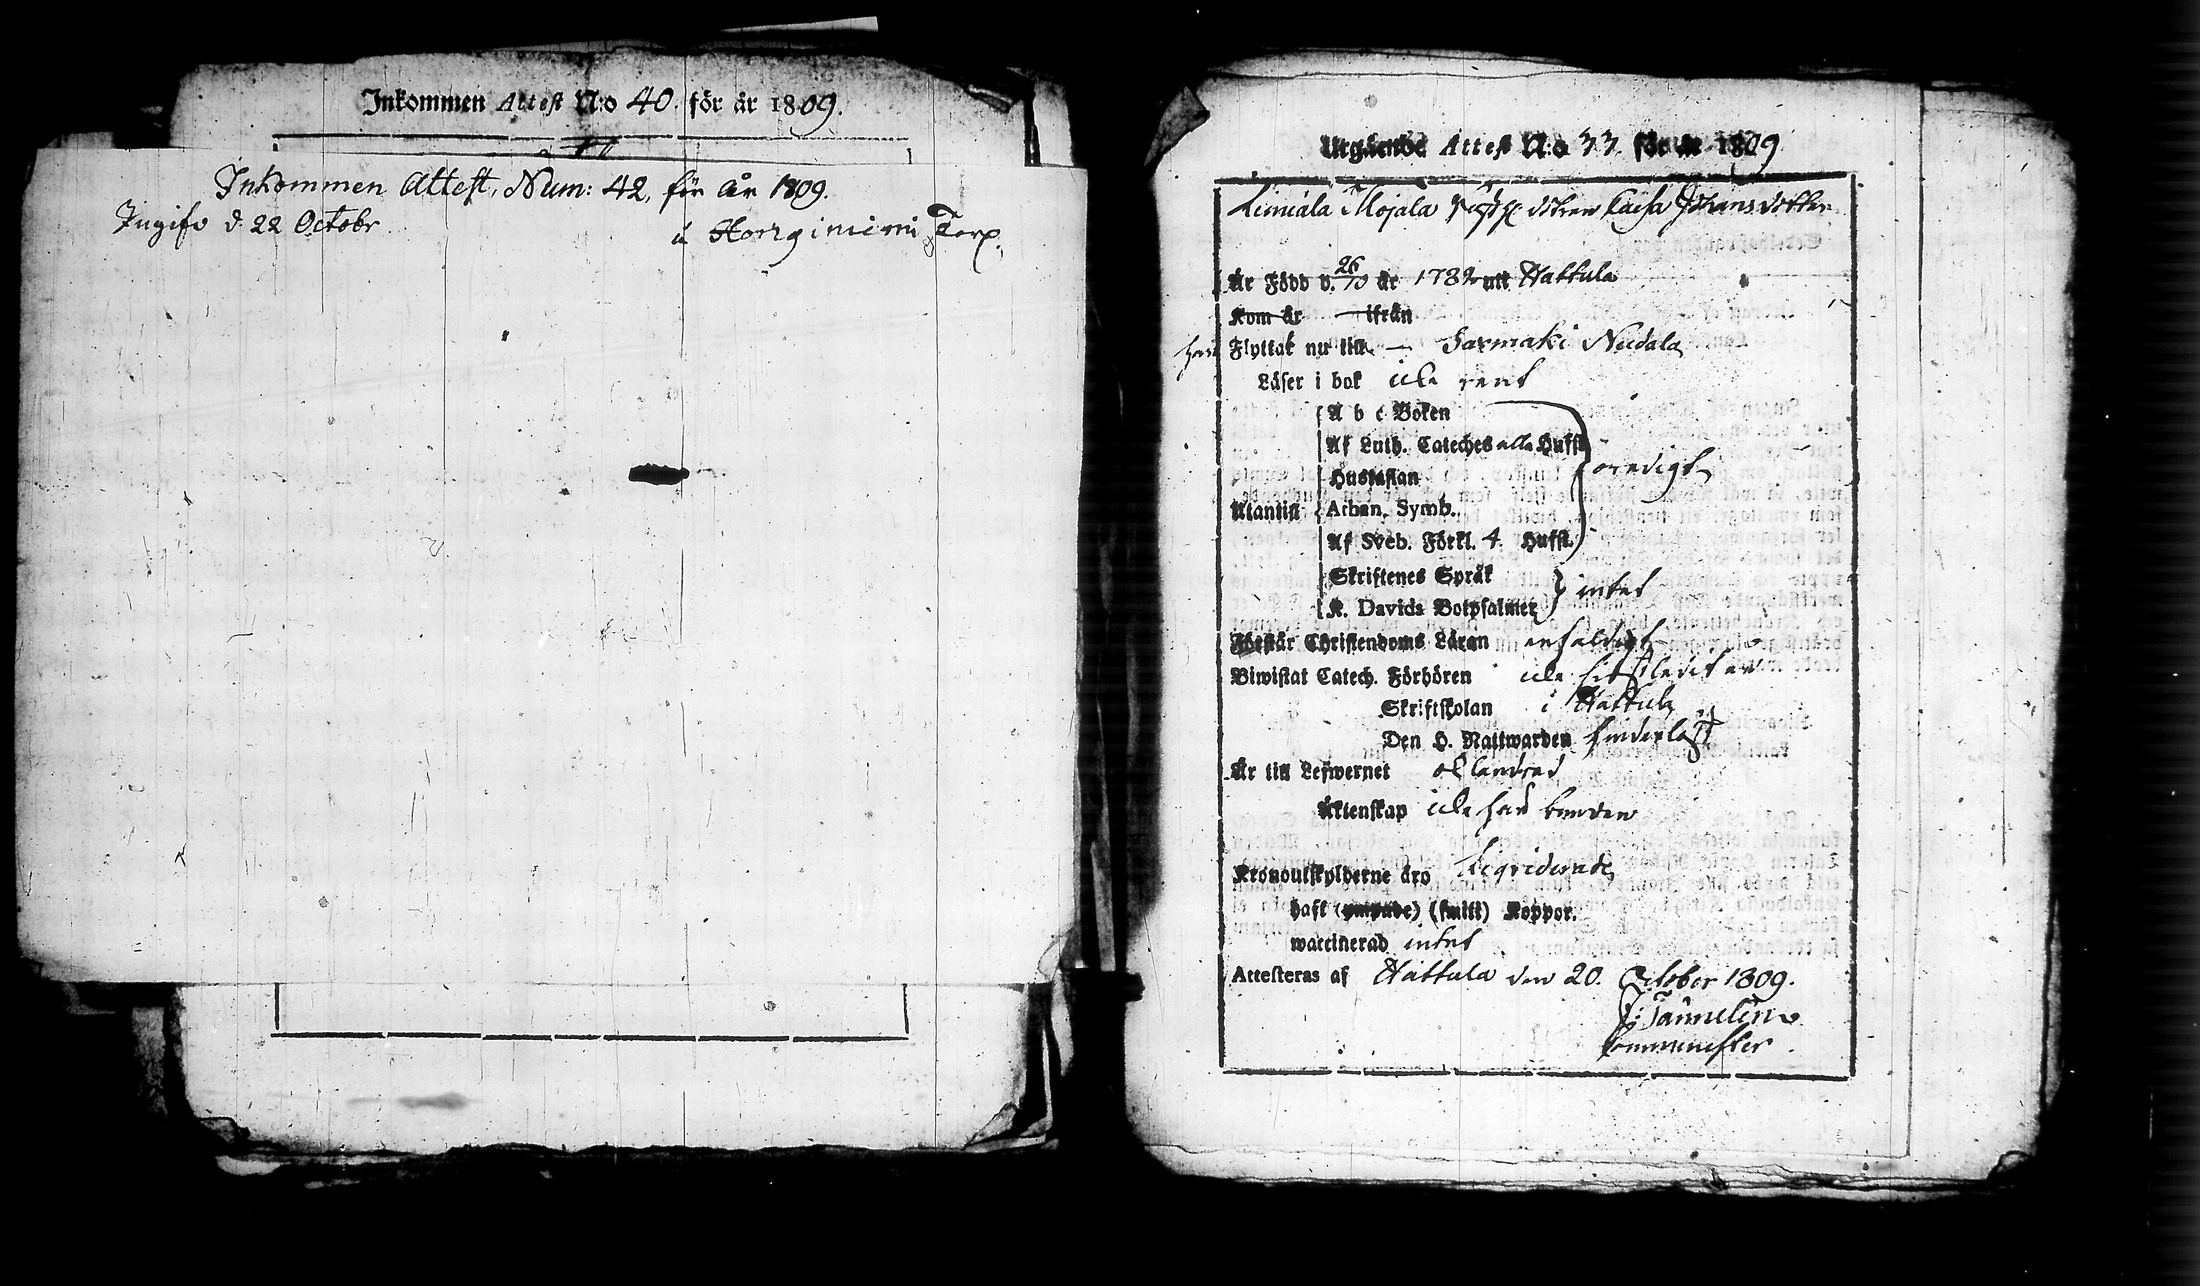 Inkommen Attest N:o 40. för år 1809.
Inkommen Attest, Num: 42, för År 1809.
d. 22 Octobr
å Torp.
Utgående Attest N:o 33 för år 1809
Mojala Caisa Johansdotter
Är Född d. 26/10 år 1782 uti Hattula
Kom år ifrån
Flyttat nu till Sarmaki Niidala
Läser i bok icke rent
A b c Boken
Af Luth. Cateches alla Hufst
Hustaflan
oredigt
Utantill
Athan. Symb.
Af Sveb. Förkl. 4. Hufst.
Skriftenes Språk
intet
K. Davids Botpsalmer
Förstår Christendoms Läran enfaldigt
Biwistat Catech. Förhören icke
Skriftskolan i Hattula
Den H. Nattwarden hinderlöst
Är till Lefwernet oklandrad
Äktenskap icke här bunden
Kronoutskylderne äro liqviderade
haft (ympade) (smitt) Koppor.
waccinerad intet
Attesteras af Hattula den 20. October 1809.
J: Tannelin
Comminister